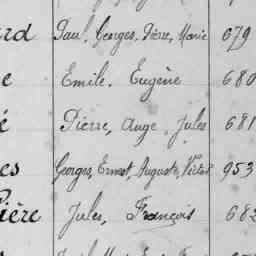 Paul, Georges, Pierre, Marie 679
e Emile, Eugène 680
é Pierre, Ange, Jules 681
es Georges, Ernest, Auguste, Victor 953
ière Jules, François 682